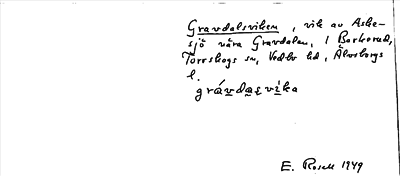 Gravdalsviken, vik av Aske-
sjö nära Gravdalen, i Borkerud,
Torrskogs sn, Vedbo hd, Älvsborgs
l.
grávdasvìka
E. Rosell 1949